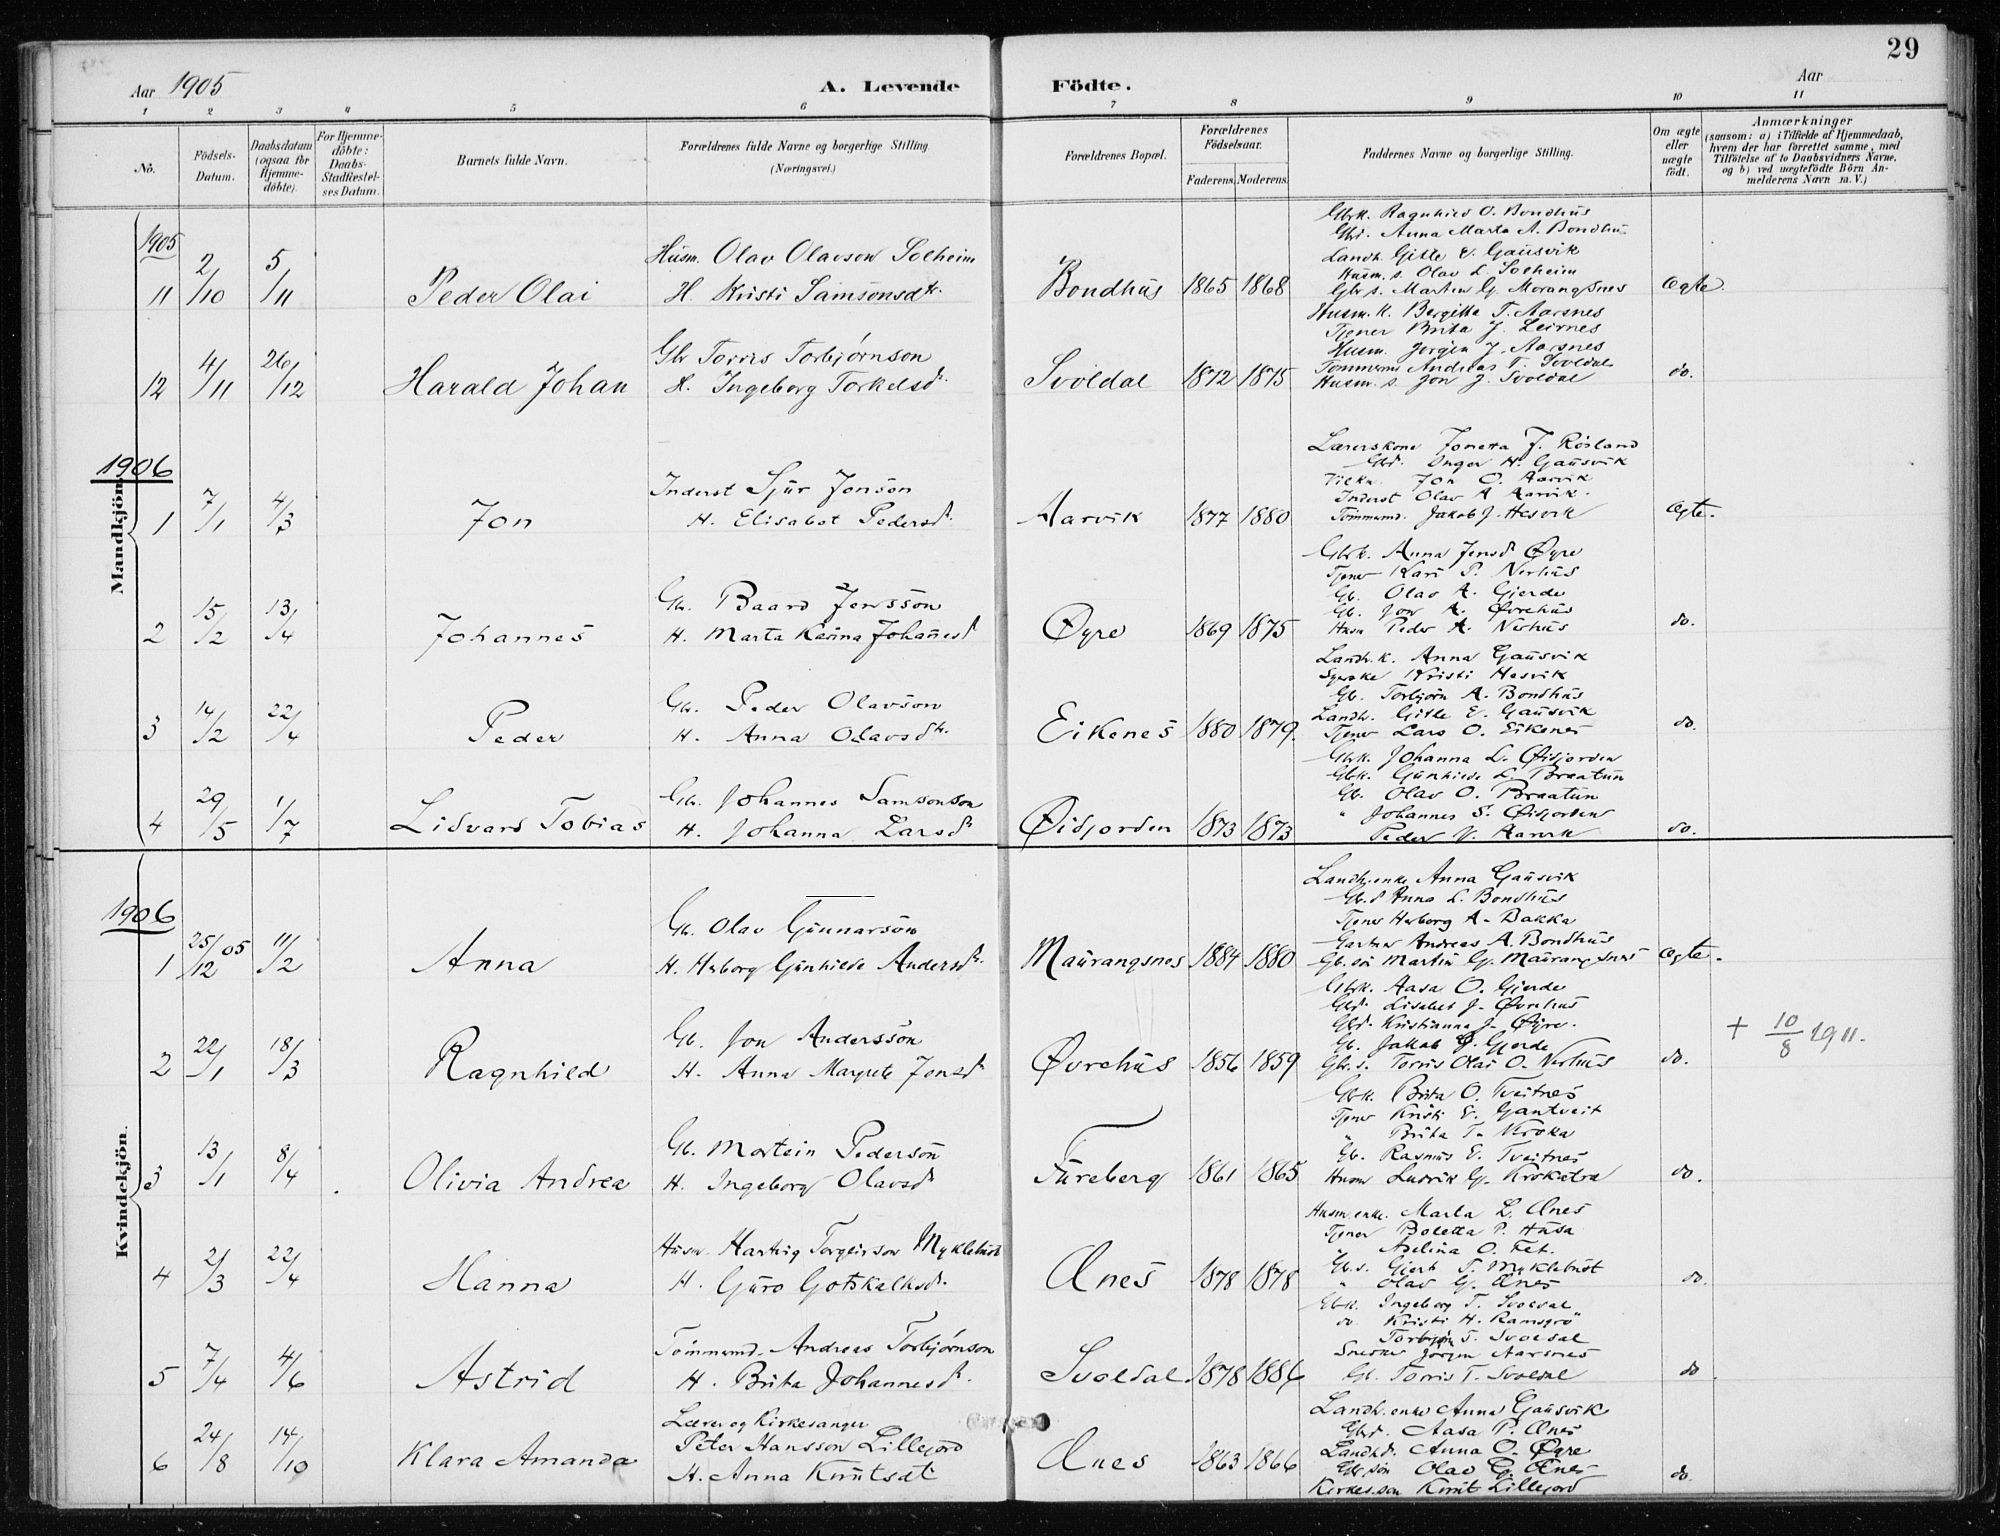 29
Aar 1905
A. Levende Födte.
Aar
1 2 3 4 5 6 7 8 9 10 11
No.
Födsels-Datum.
Daabsdatum (ogsaa for Hjemme-döbte).
For Hjemme-döbte: Daabs-Stadfæstel-ses Datum.
Barnets fulde Navn.
Forældrenes fulde Navne og borgerlige Stilling
(Næringsvei.)
Forældrenes Bopæl.
Forældrenes Födselsaar.
Faderens. Moderens.
Faddernes Navne og borgerlige Stilling.
Om ægte eller uægte födt.
Anmærkninger
(saasom: a) i Tilfælde af Hjemmedaab,
hvem der har forrettet samme, med
Tilföielse af to Daabsvidners Navne,
og b) ved uægtefödte Börn An-
melderens Navn m. V.)
Mandkjön.
1905
11 2/10 5/11 Peder Olai
Husm. Olav Olavson Solheim
H. Kristi Samsonsdtr.
Bondhus 1865 1868
Gbrk. Ragnhild O. Bondhus
Gbd. Anna Marta A. Bondhus
Landh. Gitle E. Gausvik
Husm. s. Olav L. Solheim
Gbr s. Martin G. Morangsnes
ægte.
12 4/11 26/12 Harald Johan
Gbr Torris Torbjørnson
H. Ingeborg Torkelsd.
Svoldal 1872 1875
Husm. K. Bergitta T. Aarsnes
Tjener Brita J. Leirnes
Husm. Jorgen J. Aarsnes
Tømmermd Andreas T. Svoldal
Husm. s. Jon J. Svoldal
do.
1906
1 7/1 4/3 Jon
Inderst Sjur Jonson
H. Elisabet Pedersd.
Aarvik 1877 1880
Lærerskone Jonetta J. Røsland
Gbd. Inger H. Gausvik
Jon O. Aarvik
Inderst Olav A Aarvik.
Tømmermd. Jakob J. Hesvik
ægte.
2 15/2 13/4 Johannes
Gb. Baard Jensson
H. Marta Karina Johannesd
Øyre 1869 1875
Gbrk. Anna Jensd Øyre
Tjener Kari P. Nerhus
Gb. Olav A. Gjerde
Gb. Jon A. Øvrehus
Husm Peder A. Nerhus
do.
3 14/2 22/4 Peder
Gb. Peder Olavson
H. Anna Olavsdtr.
Eikenes 1880 1879.
Landh. K. Anna Gausvik
Kristi Hesvik
Gb. Torbjørn A. Bondhus
Landh. Gitle E. Gausvik
Tjener Lars O. Eikenes
do.
4 29/5 1/7 Lidvard Tobias
Gb. Johannes Samsonson
H. Johanna Larsd
Øidjorden 1873 1873
Gbrk. Johanna L. Øidjorden
Gbk. Gunhilde L. Braatun
Gb. Olav O. Braatun
" Johannes S. Øidjorden
Peder V. Aarvik
do.
Kvindekjön.
1906
1 25/12 05 11/2 Anna
Gb. Olav Gunnarson
H. Herborg Gunhilde Andersd.
Maurangsnes 1884 1880
Landh. enke Anna Gausvik
Gb.d Anna L. Bondhus
Tjener Herborg A. Bakka
Gartner Andreas A. Bondhus
Gb. søn Martin G. Maurangsnes
ægte.
2 22/1 18/3 Ragnhild
Gb. Jon Andersson
H. Anna Margrete Jonsd
Øvrehus 1856 1859
Gbrk. Aasa O. Gjerde
Gbd. Lisabet J. Øvrehus
Gbd. Kristianna J. Øyre.
Gb. Jakob J. Gjerde
Gb. s. Torris Olai O. Nerhus
do.
+ 10/8 1911.
3 13/1 8/4 Olivia Andrea
Gb. Mortein Pederson
H. Ingeborg Olavsd
Fureberg 1861 1865
Gbk. Brita O. Tveitnes
Tjener Kristi E. Gantveit
" Brita T. Kroka
Gb. Rasmus E. Tveitnes
Husm Ludvik G. Krokatræ
do.
4 2/3 22/4 Hanna
Husm. Hartvig Torgeirson Myklebust
H. Guro Gotskalksd.
Ænes 1878 1878
Husm.enke. Marta L. Ænes
Tjener Boletta P. Husa
" Adelina O. Fet.
Gb.s. Gjert T. Myklebust
" Olav G. Ænes
do.
5 7/4 4/6 Astrid
Tømmermd. Andreas Torbjørnson
H. Brita Johannesd.
Svoldal 1878 1886
Gbk. Ingeborg T. Svoldal
do. Kristi H. Ramsgrø
Torbjørn T. Svoldal
Snedker Jørgen Aarsnes
Gb. Torris T. Svoldal
do
6 24/8 14/10 Klara Amanda
Lærer og Kirkesanger
Peter Hansson Lillejord
H. Anna Knutsdt
Ænes 1863 1866
Landh. enke Anna Gausvik
Gbd. Aasa P. Ænes
Landhd. Anna O. Øyre
Gbr. søn Olav G. Ænes
Kirkes. søn Knut Lillejord
do.